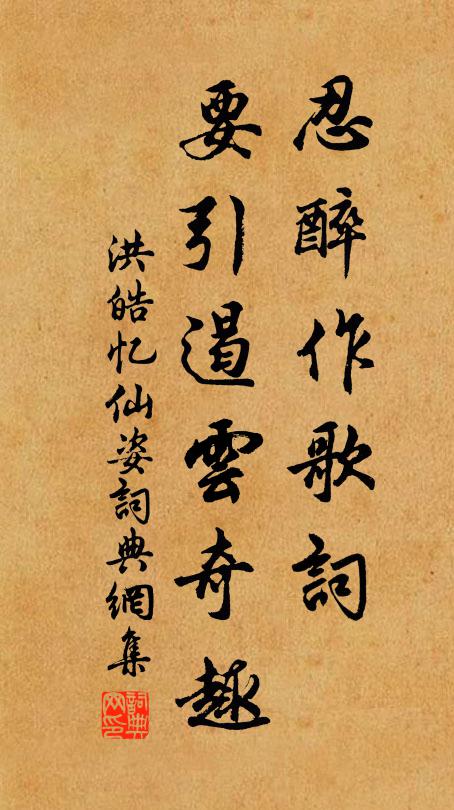 忍醉作歌詞
要引遏雲奇趣
洪皓忆仙姿詞典網集
詞典網印